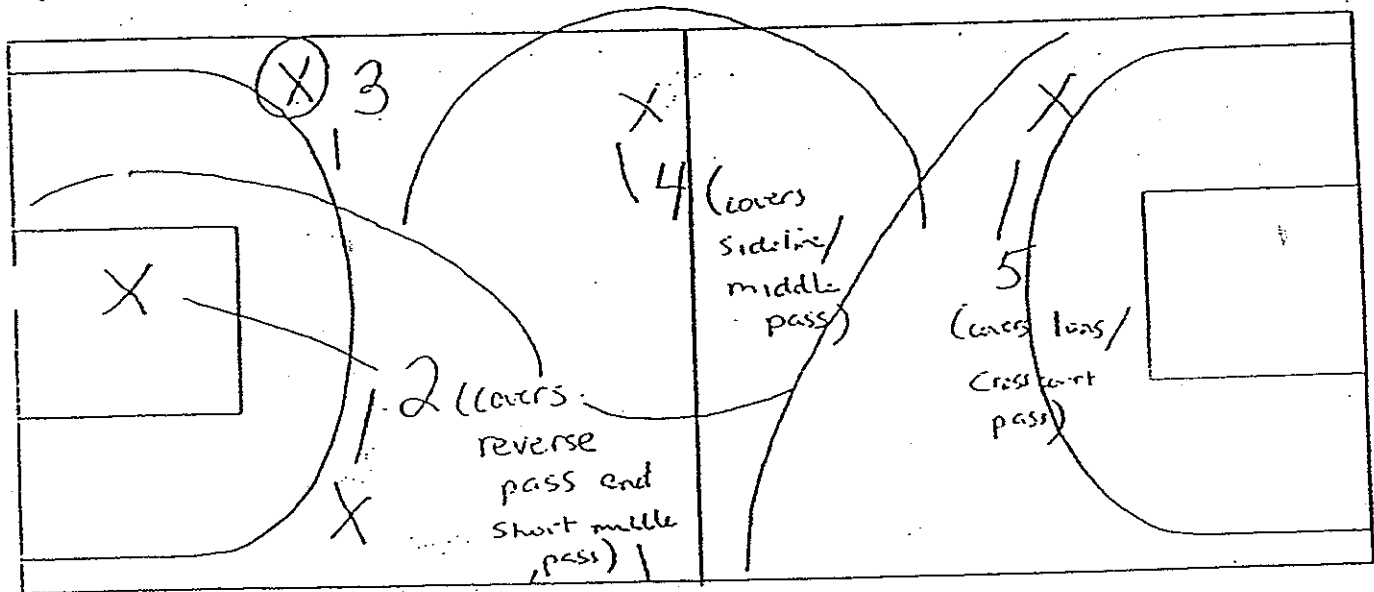 X 3
X
4 (covers
sideline/
middle
pass)
X
5
(covers long/
Crosscourt
pass)
X
2 (covers
reverse
pass and
short middle
pass)
X